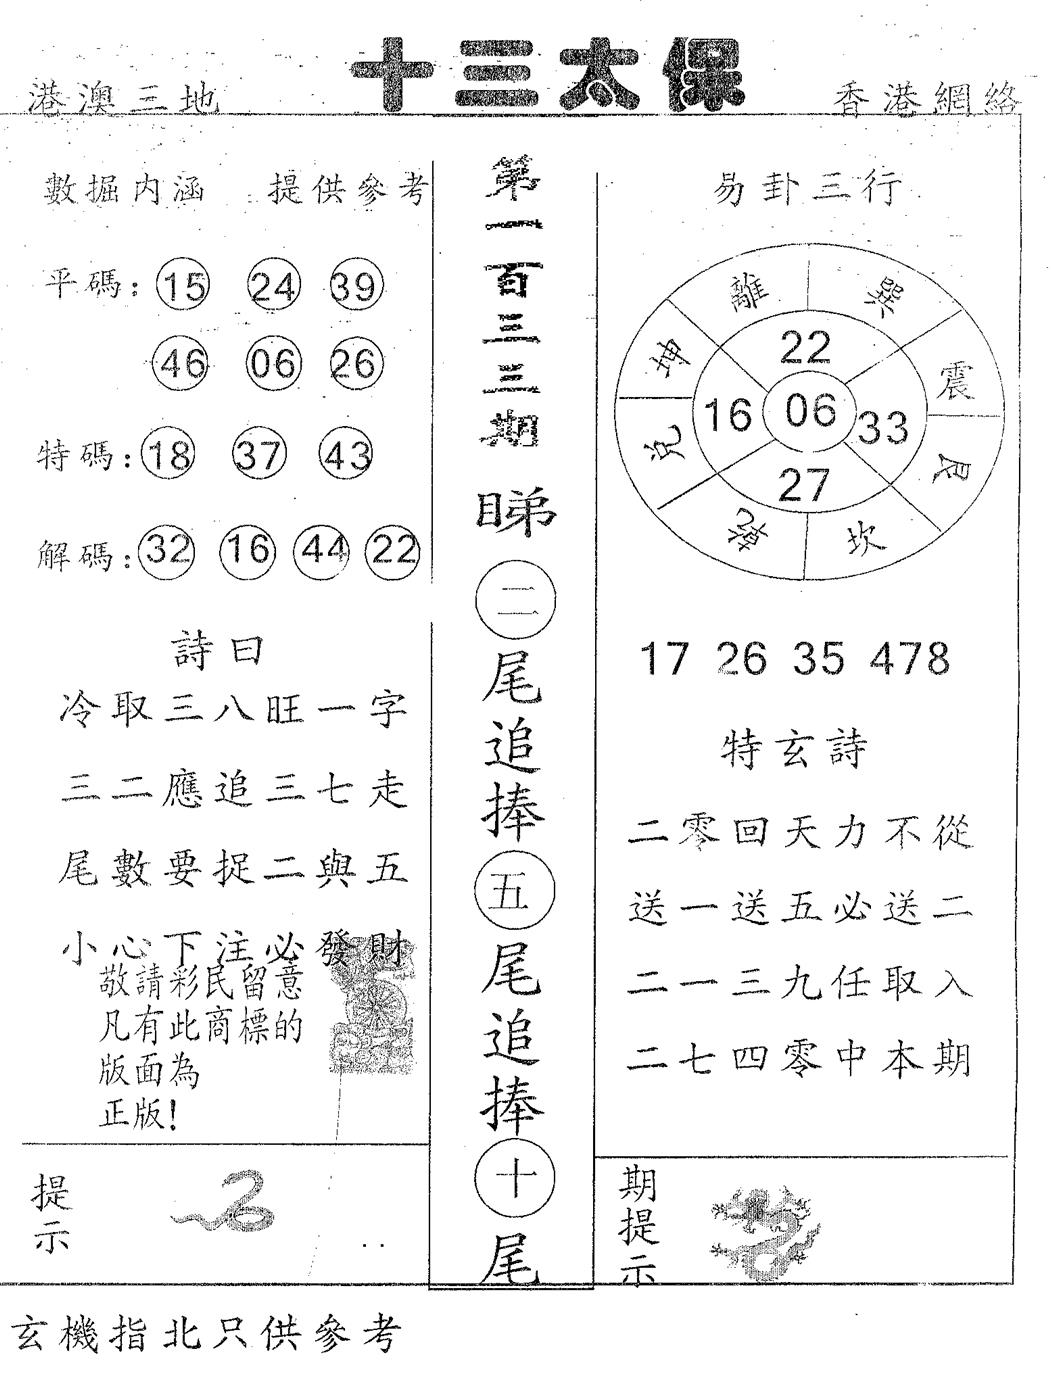 十三太保
港澳三地
香港網絡
數掘內涵 提供參考
平碼: 15 24 39
46 06 26
特碼: 18 37 43
解碼: 32 16 44 22
詩曰
冷取三八旺一字
三二應追三七走
尾數要捉二與五
小心下注必發財
敬請彩民留意
凡有此商標的
版面為
正版!
提示
第一百三三期
睇二尾追捧五尾追捧十尾
易卦三行
離 巽
坤 震
兌 艮
乾 坎
22
16 06 33
27
17 26 35 478
特玄詩
二零回天力不從
送一送五必送二
二一三九任取入
二七四零中本期
期提示
玄機指北只供參考